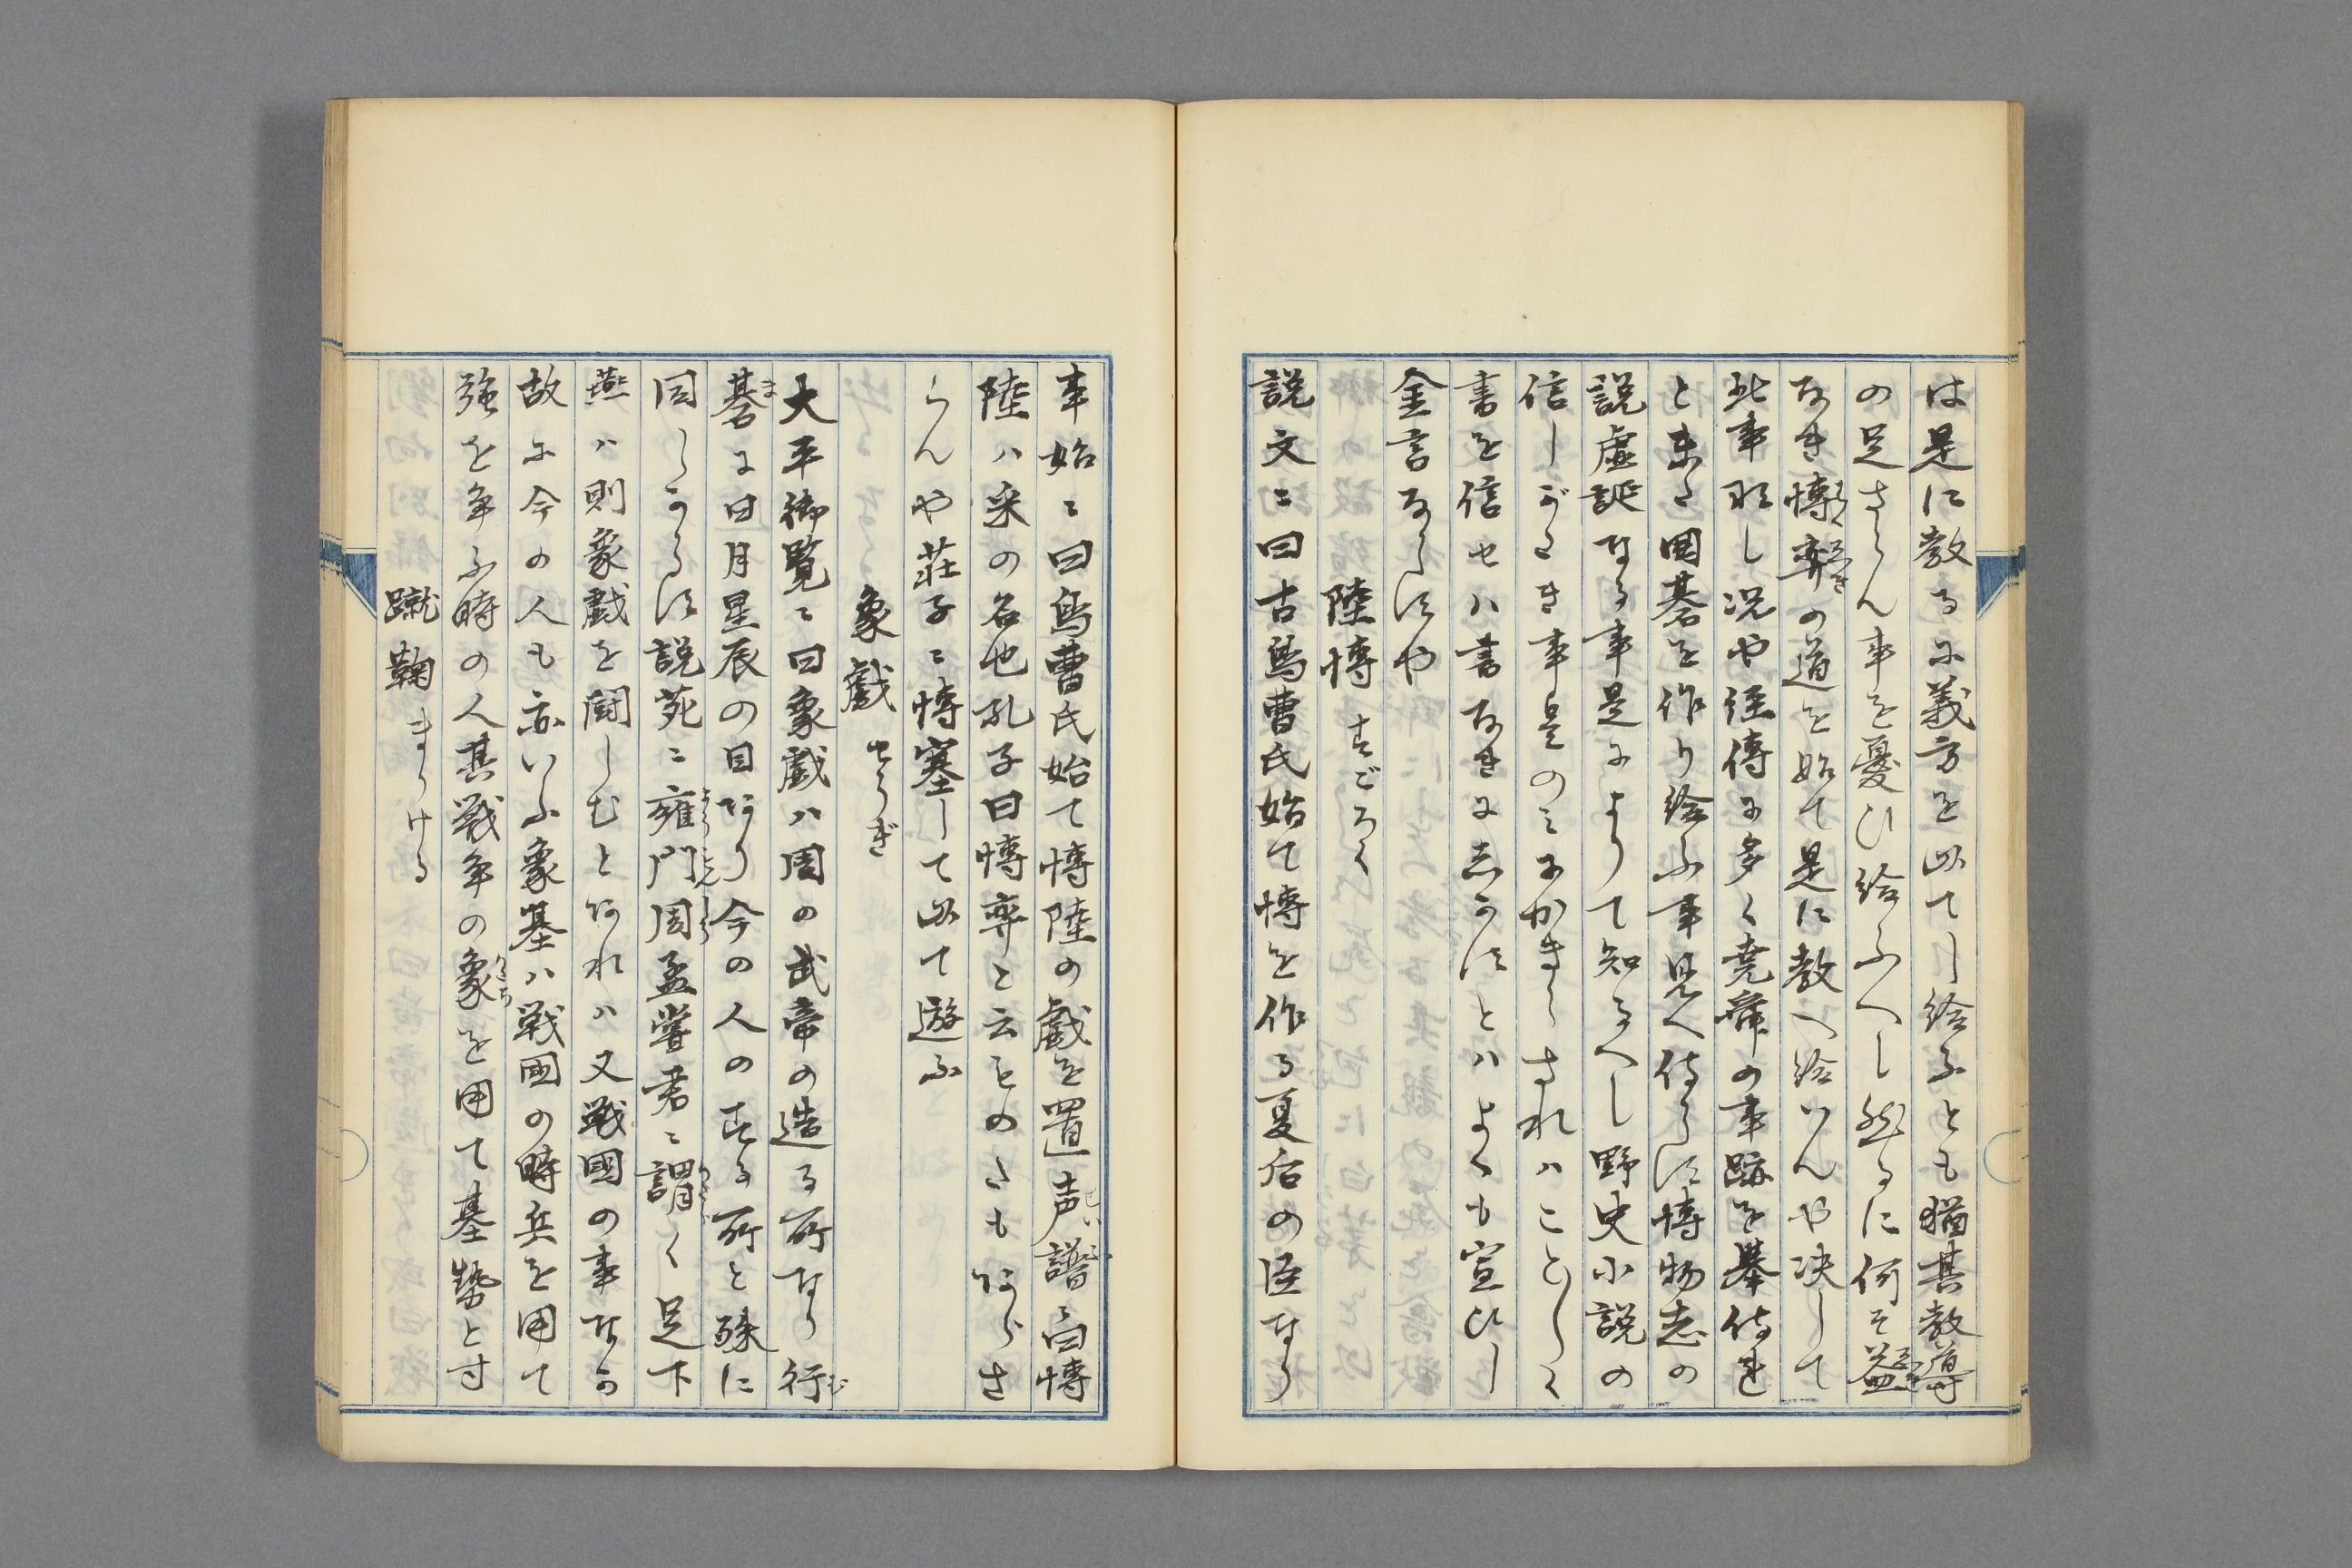 は是に教るに義方を以てし給ふとも猶其教導
の足さらん事を憂ひ給ふへし然るに何そ益
なき博奕の道を始て是に教へ給いんや决して
此事なし况や経傳に多く堯舜の事跡を挙侍れ
と未た囲碁を作り給ふ事見へ侍らす博物志の
説虚誕なる事是によりて知るへし野史小説の
信しかたき事是のミにかきらすされハことことく
書を信せハ書なきに志かすとハよくも宣ひし
金言ならすや
陸博 すごろく
説文ニ曰古烏曹氏始て博を作る夏后の臣なり
事始ニ曰烏曹氏始て博陸の戯を置声譜ニ曰博
陸ハ采の名也孔子曰博奕と云ものたもあらさ
らんや荘子ニ博塞して以て遊ふ
象戯 せうぎ
大平御覧ニ曰象戯ハ周の武帝の造る所なり行
碁に日月星辰の目あり今の人のする所と殊に
同しからす説苑ニ雍門周孟嘗君ニ謂く足下
燕ハ則象戯を闘しむとあれハ又戦國の事なか
故に今の人も亦いふ象碁ハ戦國の時兵を用て
強を争ふ時の人其戦争の象を用て碁勢と寸
蹴鞠 まりける